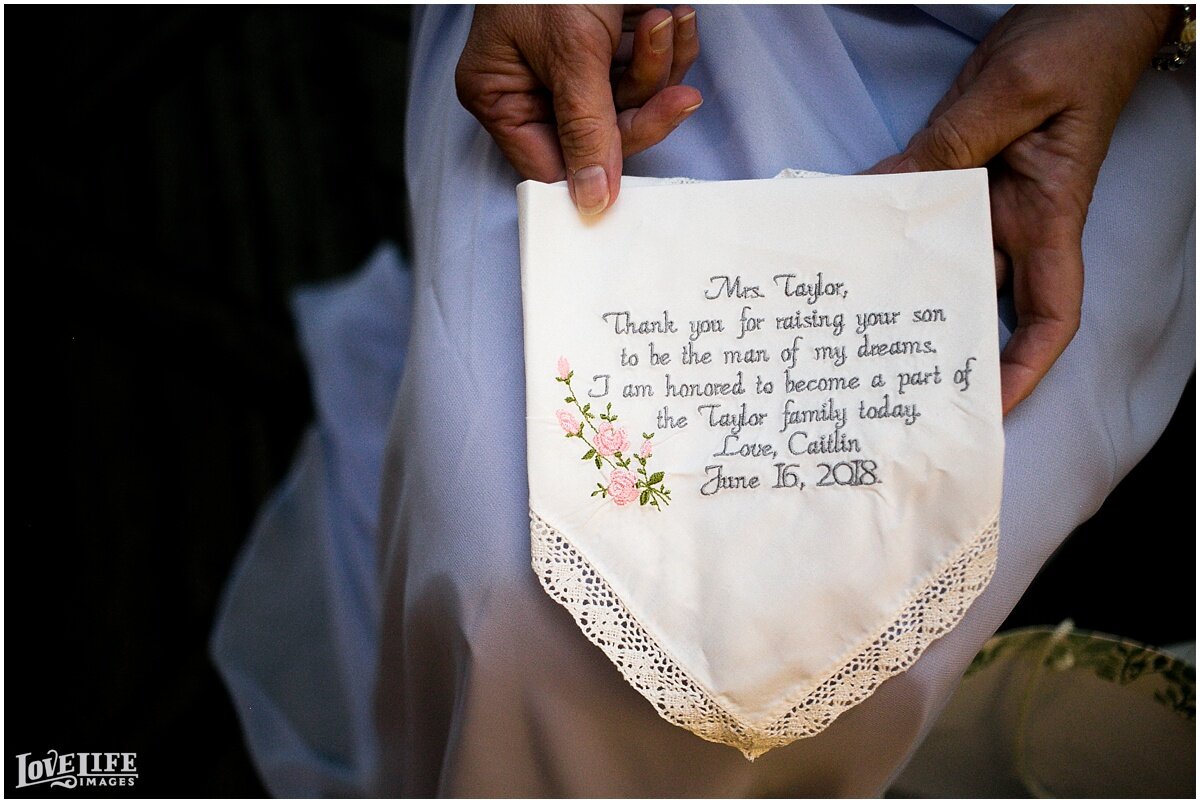 Mrs. Taylor,
Thank you for raising your son
to be the man of my dreams.
I am honored to become a part of
the Taylor family today.
Love, Caitlin
June 16, 2018.
LOVELIFE
IMAGES